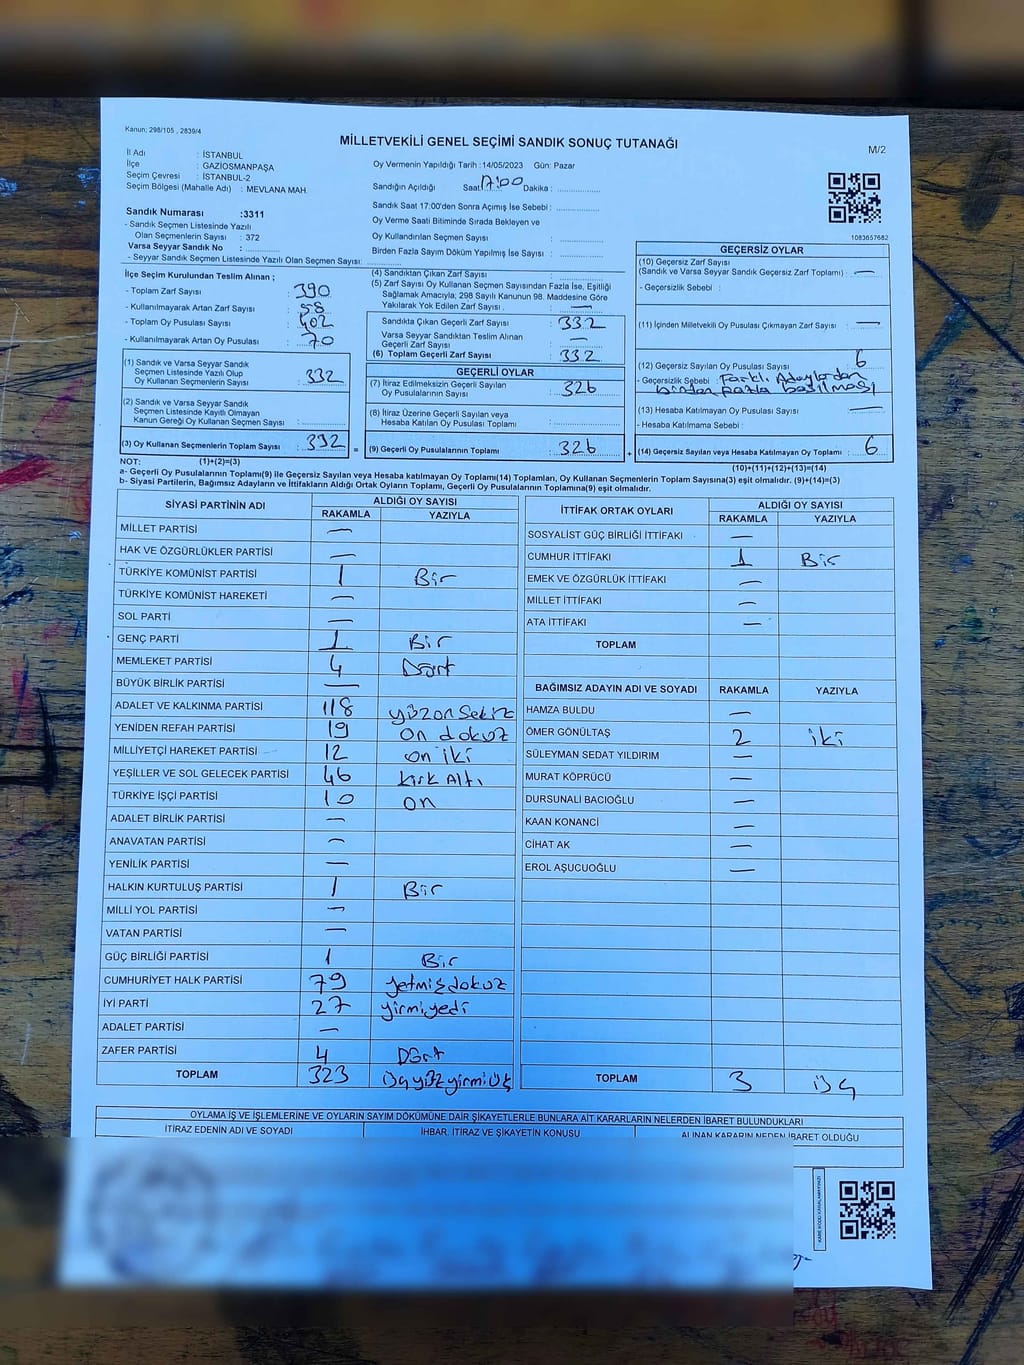 Kanun; 298/105 , 2839/4
MİLLETVEKİLİ GENEL SEÇİMİ SANDIK SONUÇ TUTANAĞI
M/2
İl Adı : İSTANBUL
İlçe : GAZİOSMANPAŞA
Seçim Çevresi : İSTANBUL-2
Seçim Bölgesi (Mahalle Adı) : MEVLANA MAH.
Oy Vermenin Yapıldığı Tarih :14/05/2023 Gün: Pazar
Sandığın Açıldığı Saat: 17:00 Dakika : ..................
Sandık Saat 17:00'den Sonra Açımış İse Sebebi : ..................
Oy Verme Saati Bitiminde Sırada Bekleyen ve
Oy Kullandırılan Seçmen Sayısı : ..................
Birden Fazla Sayım Döküm Yapılmış İse Sayısı : ..................
Sandık Numarası :3311
- Sandık Seçmen Listesinde Yazılı
Olan Seçmenlerin Sayısı : 372
Varsa Seyyar Sandık No : ..................
- Seyyar Sandık Seçmen Listesinde Yazılı Olan Seçmen Sayısı: ..................
1083657682
İlçe Seçim Kurulundan Teslim Alınan ;
- Toplam Zarf Sayısı : 390
- Kullanılmayarak Artan Zarf Sayısı : 58
- Toplam Oy Pusulası Sayısı : 402
- Kullanılmayarak Artan Oy Pusulası : 70
(1) Sandık ve Varsa Seyyar Sandık
Seçmen Listesinde Yazılı Olup
Oy Kullanan Seçmenlerin Sayısı : 332
(2) Sandık ve Varsa Seyyar Sandık
Seçmen Listesinde Kayıtlı Olmayan
Kanun Gereği Oy Kullanan Seçmen Sayısı : ..................
(3) Oy Kullanan Seçmenlerin Toplam Sayısı : 332
(1)+(2)=(3)
(4) Sandıktan Çıkan Zarf Sayısı : ..................
(5) Zarf Sayısı Oy Kullanan Seçmen Sayısından Fazla İse, Eşitliği
Sağlamak Amacıyla; 298 Sayılı Kanunun 98. Maddesine Göre
Yakılarak Yok Edilen Zarf Sayısı . : —
Sandıkta Çıkan Geçerli Zarf Sayısı : 332
Varsa Seyyar Sandıktan Teslim Alınan
Geçerli Zarf Sayısı : —
(6) Toplam Geçerli Zarf Sayısı : 332
GEÇERLİ OYLAR
(7) İtiraz Edilmeksizin Geçerli Sayılan
Oy Pusulalarının Sayısı : 326
(8) İtiraz Üzerine Geçerli Sayılan veya
Hesaba Katılan Oy Pusulası Toplamı : ..................
= (9) Geçerli Oy Pusulalarının Toplamı : 326
GEÇERSİZ OYLAR
(10) Geçersiz Zarf Sayısı
(Sandık ve Varsa Seyyar Sandık Geçersiz Zarf Toplamı) : —
- Geçersizlik Sebebi :
(11) İçinden Milletvekili Oy Pusulası Çıkmayan Zarf Sayısı : —
(12) Geçersiz Sayılan Oy Pusulası Sayısı : 6
- Geçersizlik Sebebi : Farklı Adaylardan
birden fazla basılması
(13) Hesaba Katılmayan Oy Pusulası Sayısı : —
- Hesaba Katılmama Sebebi :
+ (14) Geçersiz Sayılan veya Hesaba Katılmayan Oy Toplamı : 6
(10)+(11)+(12)+(13)=(14)
NOT:
a- Geçerli Oy Pusulalarının Toplamı(9) ile Geçersiz Sayılan veya Hesaba katılmayan Oy Toplamı(14) Toplamları, Oy Kullanan Seçmenlerin Toplam Sayısına(3) eşit olmalıdır. (9)+(14)=(3)
b- Siyasi Partilerin, Bağımsız Adayların ve İttifakların Aldığı Ortak Oyların Toplamı, Geçerli Oy Pusulalarının Toplamına(9) eşit olmalıdır.
SİYASİ PARTİNİN ADI ALDIĞI OY SAYISI
RAKAMLA YAZIYLA
MİLLET PARTİSİ —
HAK VE ÖZGÜRLÜKLER PARTİSİ —
TÜRKİYE KOMÜNİST PARTİSİ 1 Bir
TÜRKİYE KOMÜNİST HAREKETİ —
SOL PARTİ —
GENÇ PARTİ 1 Bir
MEMLEKET PARTİSİ 4 Dört
BÜYÜK BİRLİK PARTİSİ —
ADALET VE KALKINMA PARTİSİ 118 yüzonsekiz
YENİDEN REFAH PARTİSİ 19 on dokuz
MİLLİYETÇİ HAREKET PARTİSİ 12 on iki
YEŞİLLER VE SOL GELECEK PARTİSİ 46 kırk Altı
TÜRKİYE İŞÇİ PARTİSİ 10 on
ADALET BİRLİK PARTİSİ —
ANAVATAN PARTİSİ —
YENİLİK PARTİSİ —
HALKIN KURTULUŞ PARTİSİ 1 Bir
MİLLİ YOL PARTİSİ —
VATAN PARTİSİ —
GÜÇ BİRLİĞİ PARTİSİ 1 Bir
CUMHURİYET HALK PARTİSİ 79 yetmişdokuz
İYİ PARTİ 27 yirmiyedi
ADALET PARTİSİ —
ZAFER PARTİSİ 4 Dört
TOPLAM 323 üçyüzyirmiüç
İTTİFAK ORTAK OYLARI ALDIĞI OY SAYISI
RAKAMLA YAZIYLA
SOSYALİST GÜÇ BİRLİĞİ İTTİFAKI —
CUMHUR İTTİFAKI 1 Bir
EMEK VE ÖZGÜRLÜK İTTİFAKI —
MİLLET İTTİFAKI —
ATA İTTİFAKI —
TOPLAM
BAĞIMSIZ ADAYIN ADI VE SOYADI RAKAMLA YAZIYLA
HAMZA BULDU —
ÖMER GÖNÜLTAŞ 2 iki
SÜLEYMAN SEDAT YILDIRIM —
MURAT KÖPRÜCÜ —
DURSUNALİ BACIOĞLU —
KAAN KONANCİ —
CİHAT AK —
EROL AŞUCUOĞLU —
TOPLAM 3 üç
OYLAMA İŞ VE İŞLEMLERİNE VE OYLARIN SAYIM DÖKÜMÜNE DAİR ŞİKAYETLERLE BUNLARA AİT KARARLARIN NELERDEN İBARET BULUNDUKLARI
İTİRAZ EDENİN ADI VE SOYADI İHBAR, İTİRAZ VE ŞİKAYETİN KONUSU ALINAN KARARIN NEDEN İBARET OLDUĞU